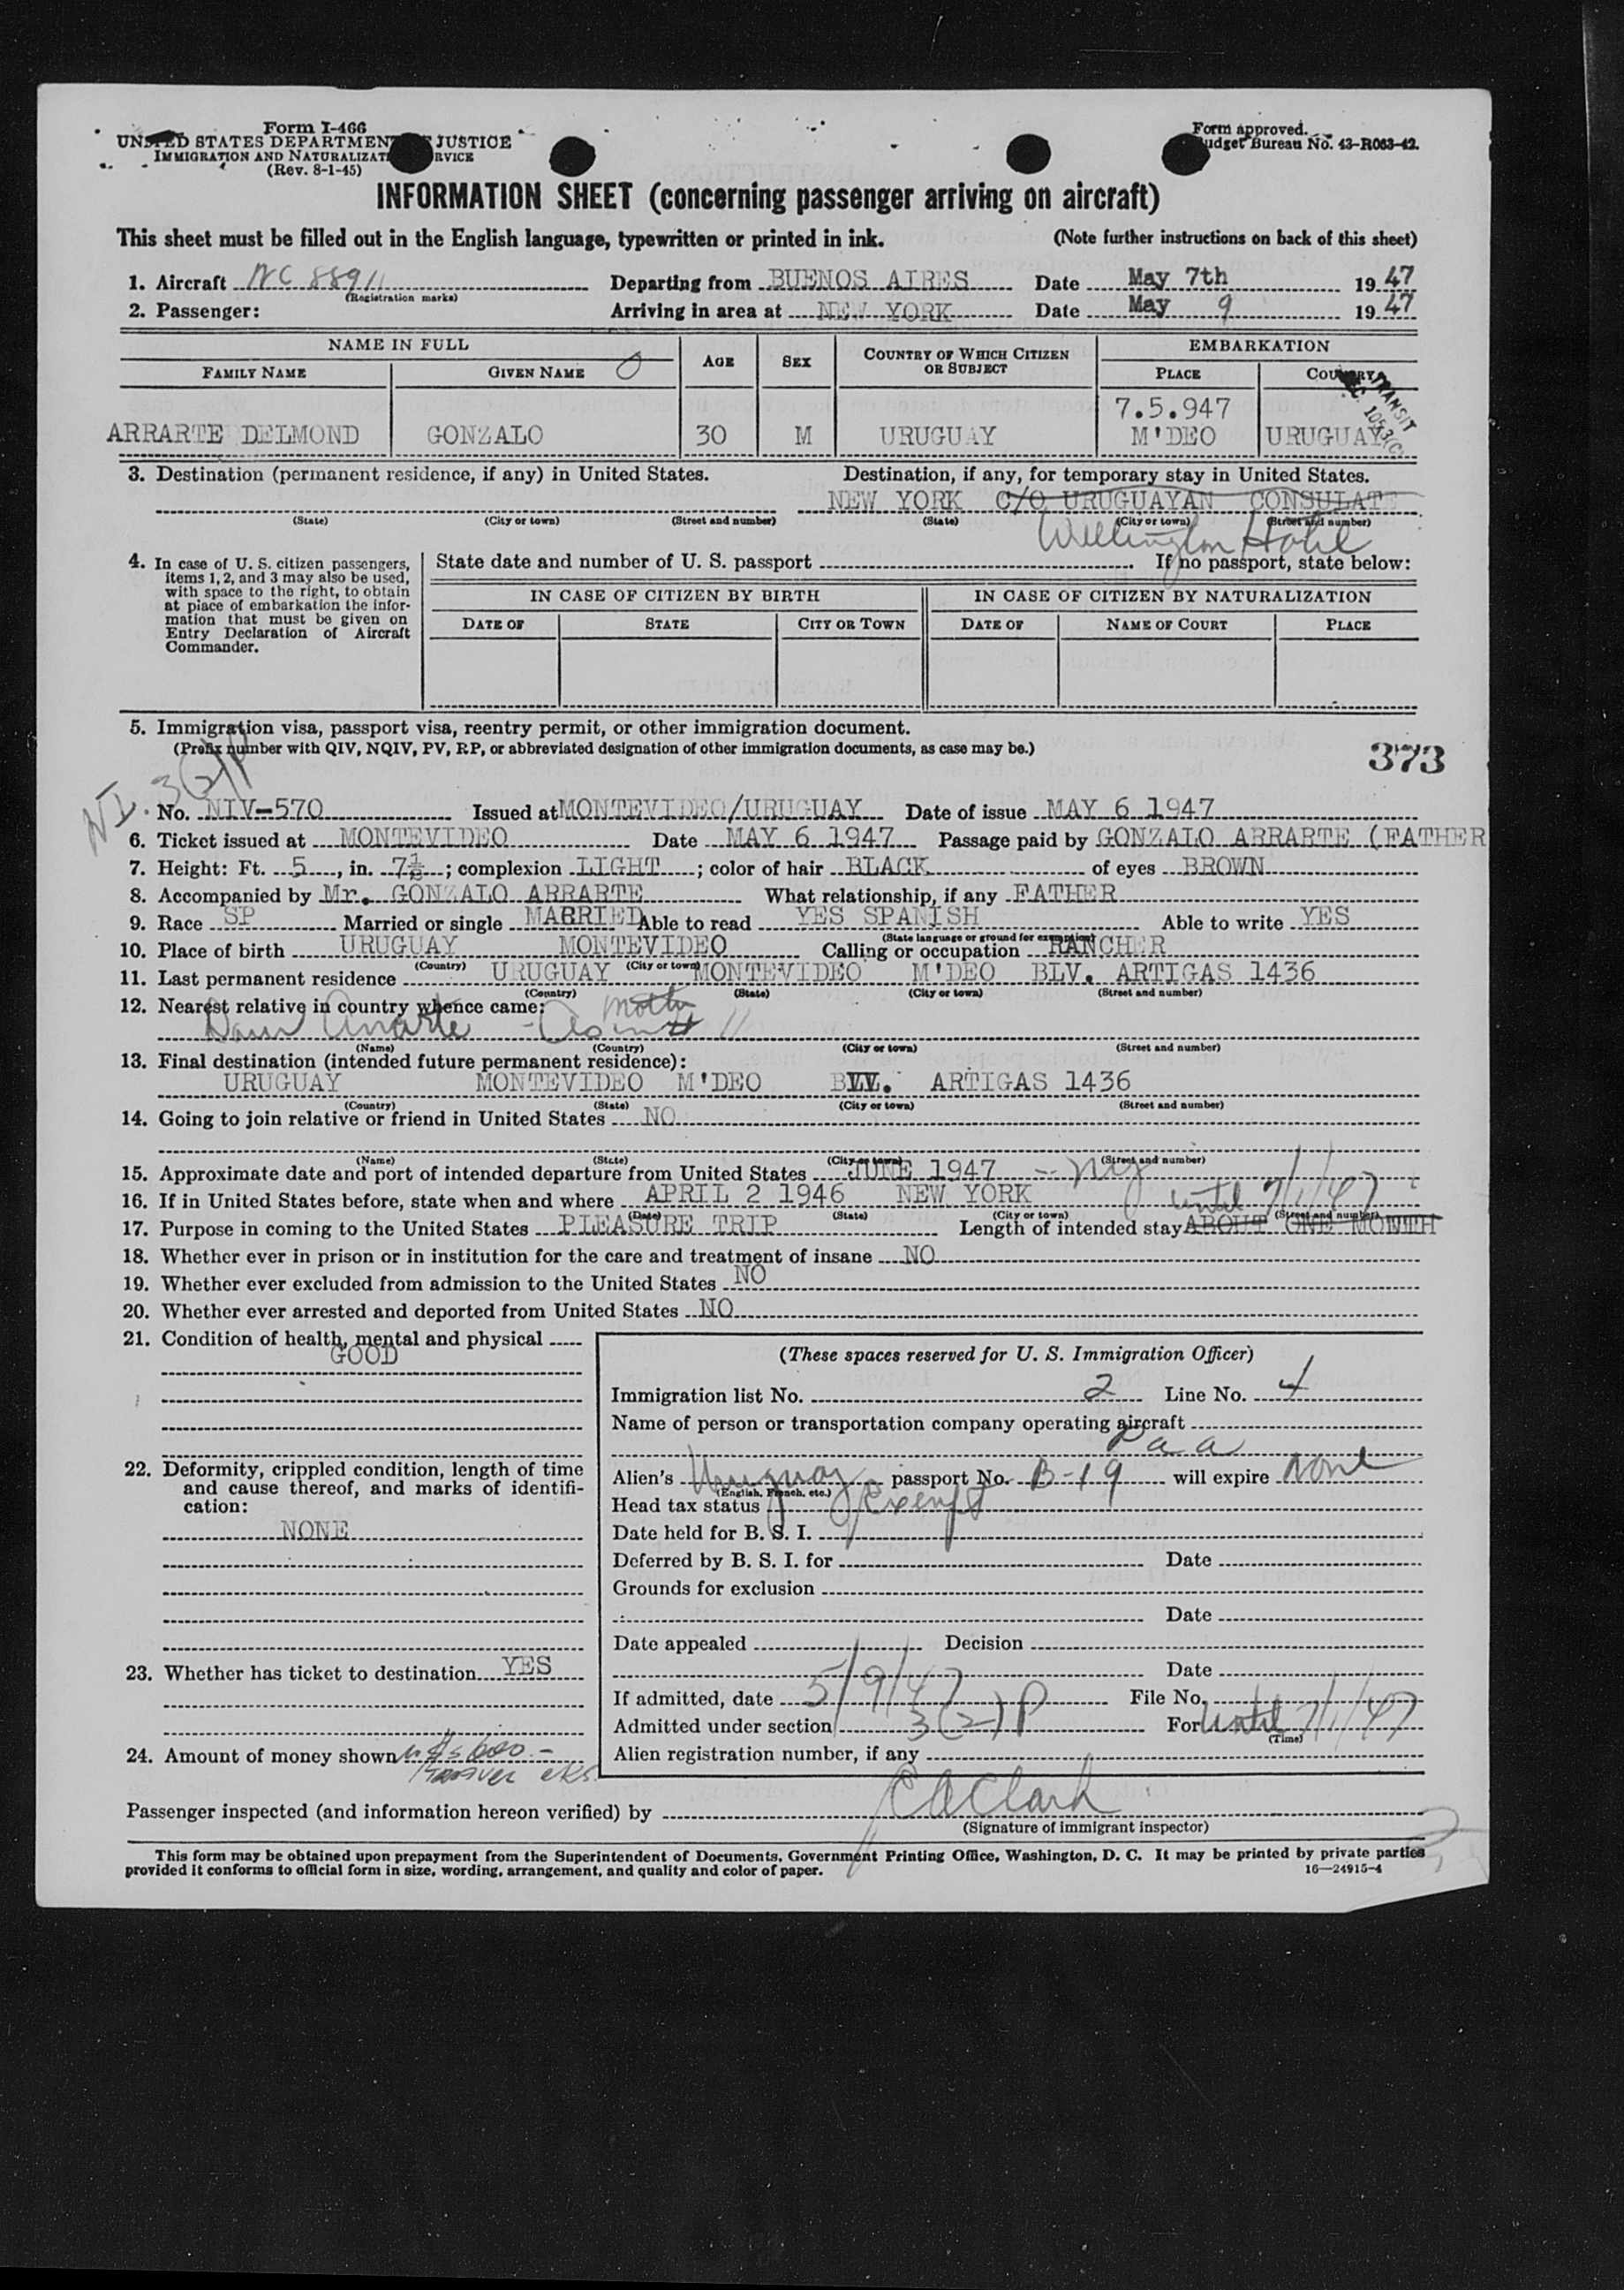 Form I-466
UNITED STATES DEPARTMENT JUSTICE
IMMIGRATION AND NATURALIZAT RVICE
(Rev. 8-1-45)
Form approved.
Budget Bureau No. 43-R063-42.
INFORMATION SHEET (concerning passenger arriving on aircraft)
This sheet must be filled out in the English language, typewritten or printed in ink. (Note further instructions on back of this sheet)
1. Aircraft NC 88911 Departing from BUENOS AIRES Date May 7th 1947
(Registration marks)
2. Passenger: Arriving in area at NEW YORK Date May 9 1947
NAME IN FULL AGE SEX COUNTRY OF WHICH CITIZEN OR SUBJECT EMBARKATION
FAMILY NAME GIVEN NAME PLACE COUNTRY
TRANSIT
7.5.947
ARRARTE DELMOND GONZALO 30 M URUGUAY M'DEO URUGUAY
3. Destination (permanent residence, if any) in United States. Destination, if any, for temporary stay in United States.
NEW YORK C/O URUGUAYAN CONSULAT
(State) (City or town) (Street and number) (State) (City or town) (Street and number)
Wellington Hotel
4. In case of U. S. citizen passengers, items 1, 2, and 3 may also be used, with space to the right, to obtain at place of embarkation the information that must be given on Entry Declaration of Aircraft Commander.
State date and number of U. S. passport . If no passport, state below:
IN CASE OF CITIZEN BY BIRTH IN CASE OF CITIZEN BY NATURALIZATION
DATE OF STATE CITY OR TOWN DATE OF NAME OF COURT PLACE
5. Immigration visa, passport visa, reentry permit, or other immigration document.
(Prefix number with QIV, NQIV, PV, RP, or abbreviated designation of other immigration documents, as case may be.)
373
NI. 3(2)P
No. NIV-570 Issued at MONTEVIDEO/URUGUAY Date of issue MAY 6 1947
6. Ticket issued at MONTEVIDEO Date MAY 6 1947 Passage paid by GONZALO ARRARTE (FATHER
7. Height: Ft. 5, in. 7½; complexion LIGHT; color of hair BLACK of eyes BROWN
8. Accompanied by Mr. GONZALO ARRARTE What relationship, if any FATHER
9. Race SP Married or single MARRIED Able to read YES SPANISH Able to write YES
(State language or ground for exemption)
10. Place of birth URUGUAY MONTEVIDEO Calling or occupation RANCHER
(Country) (City or town)
11. Last permanent residence URUGUAY MONTEVIDEO M'DEO BLV. ARTIGAS 1436
(Country) (State) (City or town) (Street and number)
12. Nearest relative in country whence came: Mother
Arrarte - As in 11
(Name) (Country) (City or town) (Street and number)
13. Final destination (intended future permanent residence):
URUGUAY MONTEVIDEO M'DEO BLV. ARTIGAS 1436
(Country) (State) (City or town) (Street and number)
14. Going to join relative or friend in United States NO
(Name) (State) (City or town) (Street and number)
15. Approximate date and port of intended departure from United States JUNE 1947 -- NY
16. If in United States before, state when and where APRIL 2 1946 NEW YORK until 7/1/47
(Date) (State) (City or town) (Street and number)
17. Purpose in coming to the United States PLEASURE TRIP Length of intended stay ABOUT ONE MONTH
18. Whether ever in prison or in institution for the care and treatment of insane NO
19. Whether ever excluded from admission to the United States NO
20. Whether ever arrested and deported from United States NO
21. Condition of health, mental and physical
GOOD
22. Deformity, crippled condition, length of time and cause thereof, and marks of identification:
NONE
23. Whether has ticket to destination YES
24. Amount of money shown
(These spaces reserved for U. S. Immigration Officer)
Immigration list No. 2 Line No. 4
Name of person or transportation company operating aircraft
Paa
Alien's Uruguay passport No. B-19 will expire None
(English, French, etc.)
Head tax status Exempt
Date held for B. S. I.
Deferred by B. S. I. for Date
Grounds for exclusion
Date
Date appealed Decision
Date
If admitted, date 5/9/47 File No.
Admitted under section 3(2)P For Until 7/1/47
(Time)
Alien registration number, if any
Passenger inspected (and information hereon verified) by C A Clark
(Signature of immigrant inspector)
This form may be obtained upon prepayment from the Superintendent of Documents, Government Printing Office, Washington, D. C. It may be printed by private parties
provided it conforms to official form in size, wording, arrangement, and quality and color of paper. 16—24915-4